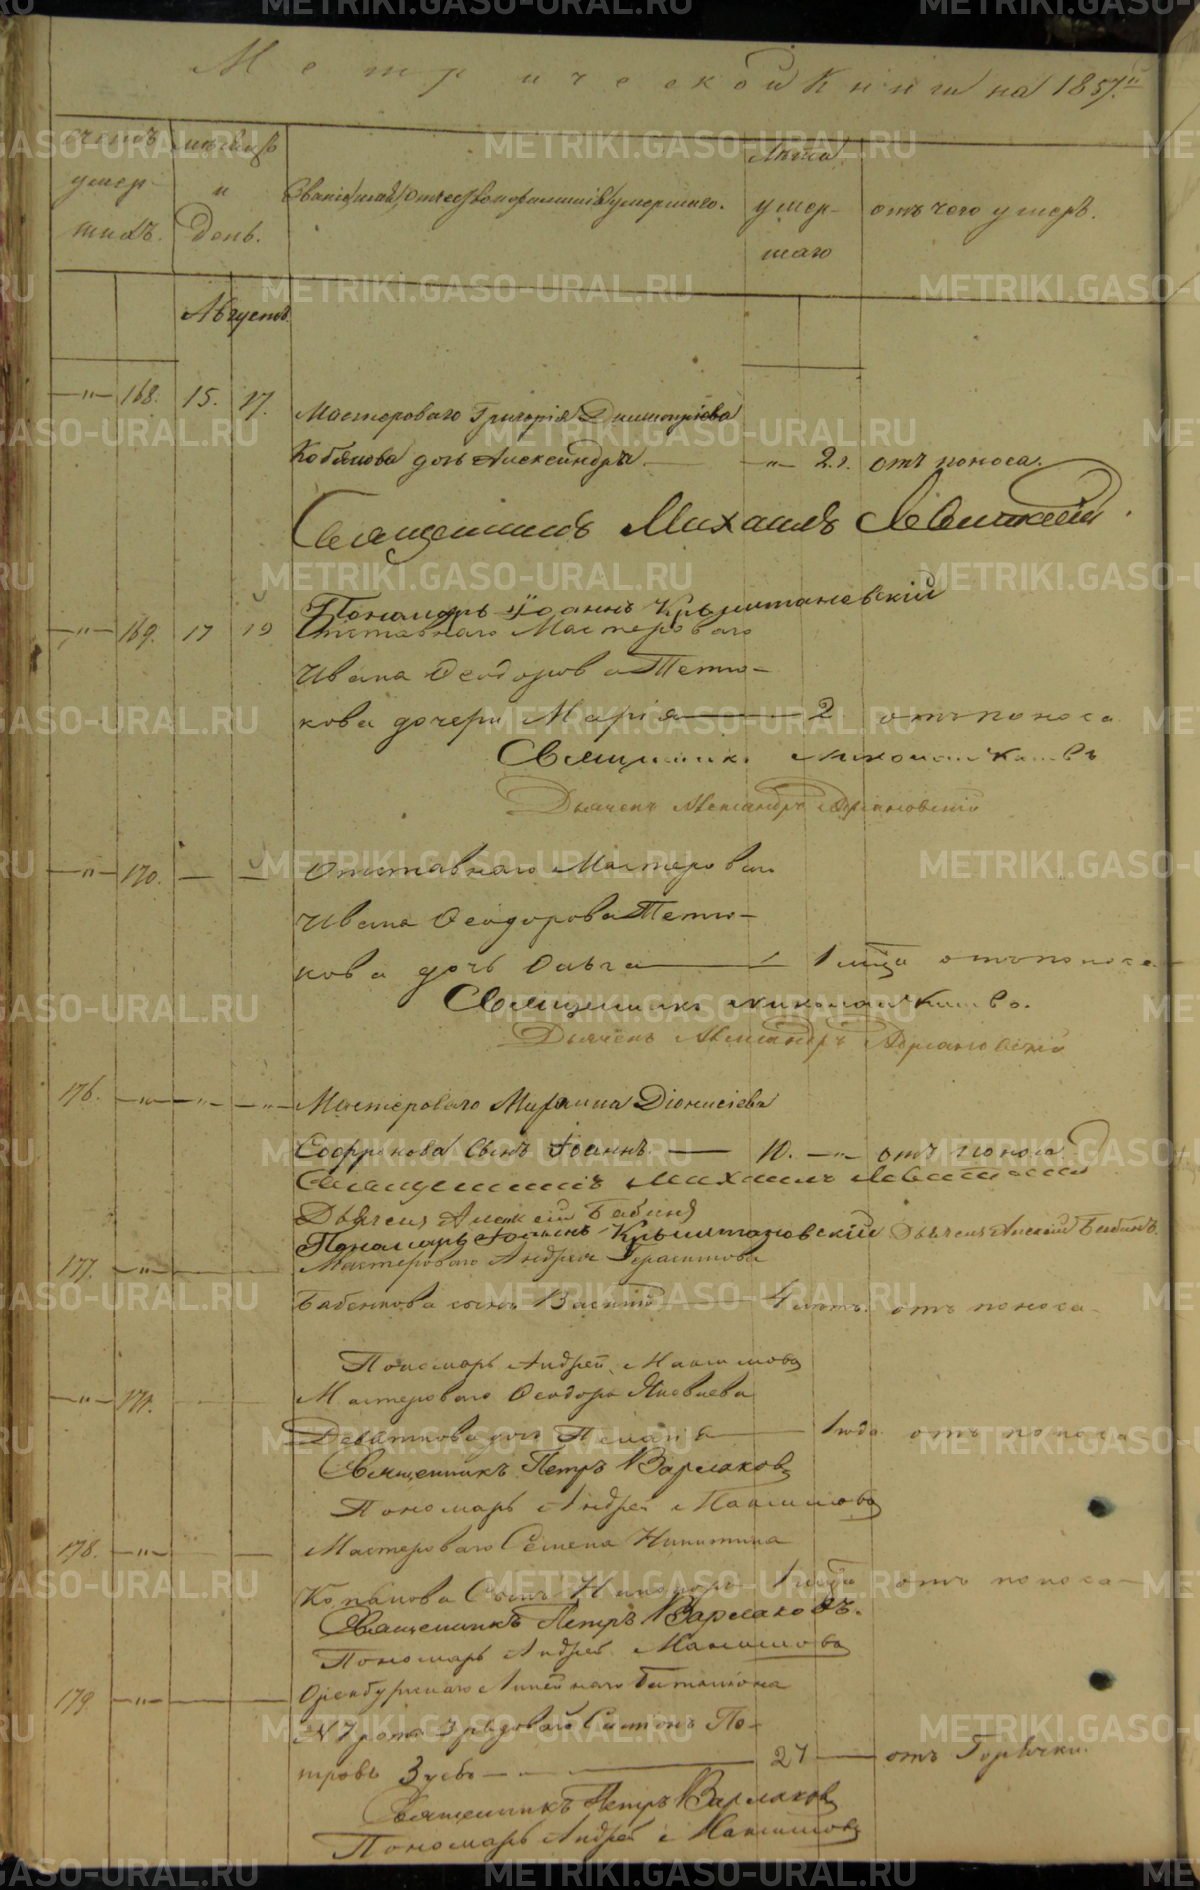 Метрической Книги на 1857.й
счетъ умер- шихъ.
мѣсяцъ и день.
Званіе, имя, отчество и фамилія умершаго.
Лѣта умер- шаго
отъ чего умеръ.
Августъ.
—"— 168. 15. 17. Мастероваго Григорія Димитріева
Кобякова дочь Александра. —"— 2.г. отъ поноса.
Священникъ Михаилъ Левитскій.
Пономарь Іоаннъ Крыштановскій
—"— 169. 17 19 Отставнаго Мастероваго
Ивана Ѳеодорова Петю-
кова дочери Марія 2 отъ поноса
Священникъ Николай
Дьячекъ Александръ Адріановскій
—"— 170. — — Отставнаго Мастероваго
Ивана Ѳеодорова Петю-
кова дочь Ольга 1 мѣся отъ поноса
Священникъ Николай
Дьячекъ Александръ Адріановскій
176. —"— —"— —"— Мастероваго Діонисіева
Софронова Сынъ Іоаннъ. — 10. —"— отъ поноса
Священникъ Михаилъ Левитскій
Дьячекъ Алексій Бабинъ
Пономарь Іоаннъ Крыштановскій Дьячекъ Алексій Бабинъ
177. —"— Мастероваго Андрея Герасимова
Бабенкова сынъ Василій 4 отъ поноса
Пономарь Андрей Максимовъ
—"— 171. Мастероваго Ѳеодора Яковлева
Девяткова дочь Пелагія 1 года отъ поноса
Священникъ Петръ Варлаковъ
Пономарь Андрей Максимовъ
178. —"— — Мастероваго Семена Никитина
Копалова Сынъ Никаноръ 1 мѣся отъ поноса
Священникъ Петръ Варлаковъ.
Пономарь Андрей Максимовъ
179. —"— Оренбургскаго Линейнаго Баталіона
№ 7 роты 3 рядоваго Симонъ Пе-
тровъ Зуевъ — 27 — отъ Горячки.
Священникъ Петръ Варлаковъ
Пономарь Андрей Максимовъ
METRIKI.GASO-URAL.RU